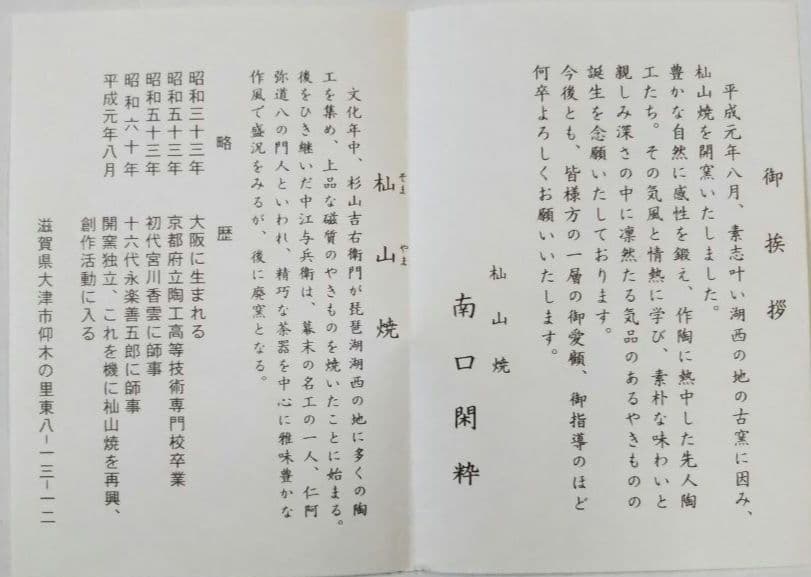 御挨拶
平成元年八月、素志叶い湖西の地の古窯に因み、
杣山焼を開窯いたしました。
豊かな自然に感性を鍛え、作陶に熱中した先人陶
工たち。その気風と情熱に学び、素朴な味わいと
親しみ深さの中に凛然たる気品のあるやきものの
誕生を念願いたしております。
今後とも、皆様方の一層の御愛顧、御指導のほど
何卒よろしくお願いいたします。
杣山焼
南口閑粋
杣山焼
そま やま
文化年中、杉山吉右衛門が琵琶湖湖西の地に多くの陶
工を集め、上品な磁質のやきものを焼いたことに始まる。
後をひき継いだ中江与兵衛は、幕末の名工の一人、仁阿
弥道八の門人といわれ、精巧な茶器を中心に雅味豊かな
作風で盛況をみるが、後に廃窯となる。
略歴
昭和三十三年 大阪に生まれる
昭和五十三年 京都府立陶工高等技術専門校卒業
昭和五十三年 初代宮川香雲に師事
昭和六十年 十六代永楽善五郎に師事
平成元年八月 開窯独立、これを機に杣山焼を再興、
創作活動に入る
滋賀県大津市仰木の里東八ー一三ー一二